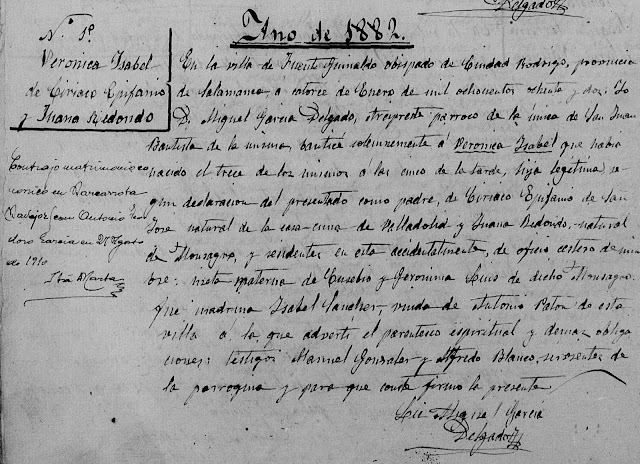 Delgado
Año de 1882.
N.º 1º
Veronica Isabel
de Ciriaco Epifanio
y Juana Redondo
En la villa de Fuente Guinaldo obispado de Ciudad Rodrigo, provincia
de Salamanca, a catorce de Enero de mil ochocientos ochenta y dos: Yo
D. Miguel Garcia Delgado, arcipreste parroco de la única de San Juan
Bautista de la misma, bauticé solemnemente á Veronica Isabel que habia
nacido el trece de los mismos á las cinco de la tarde, hija legítima, se
gun declaracion del presentado como padre, de Ciriaco Epifanio de San
Jose natural de la casa-cuna de Valladolid y Juana Redondo, natural
de Monsagro, y residentes en esta accidentalmente, de oficio cestero de mim
bre: nieta materna de Eusebio y Geronima Luis de dicho Monsagro.
Fue madrina Isabel Sanchez, viuda de Antonio Paton de esta
villa á la que advertí el parentesco espiritual y demas obliga
ciones: testigos Manuel Gonzalez y Alfredo Blanco, sirvientes de
la parroquia y para que conste firmo la presente
Lic Miguel Garcia
Delgado
Contrajo matrimonio ca
nonico en Barcarrota
Badajoz, con Antonio
Garcia en 27 Agosto
de 1910